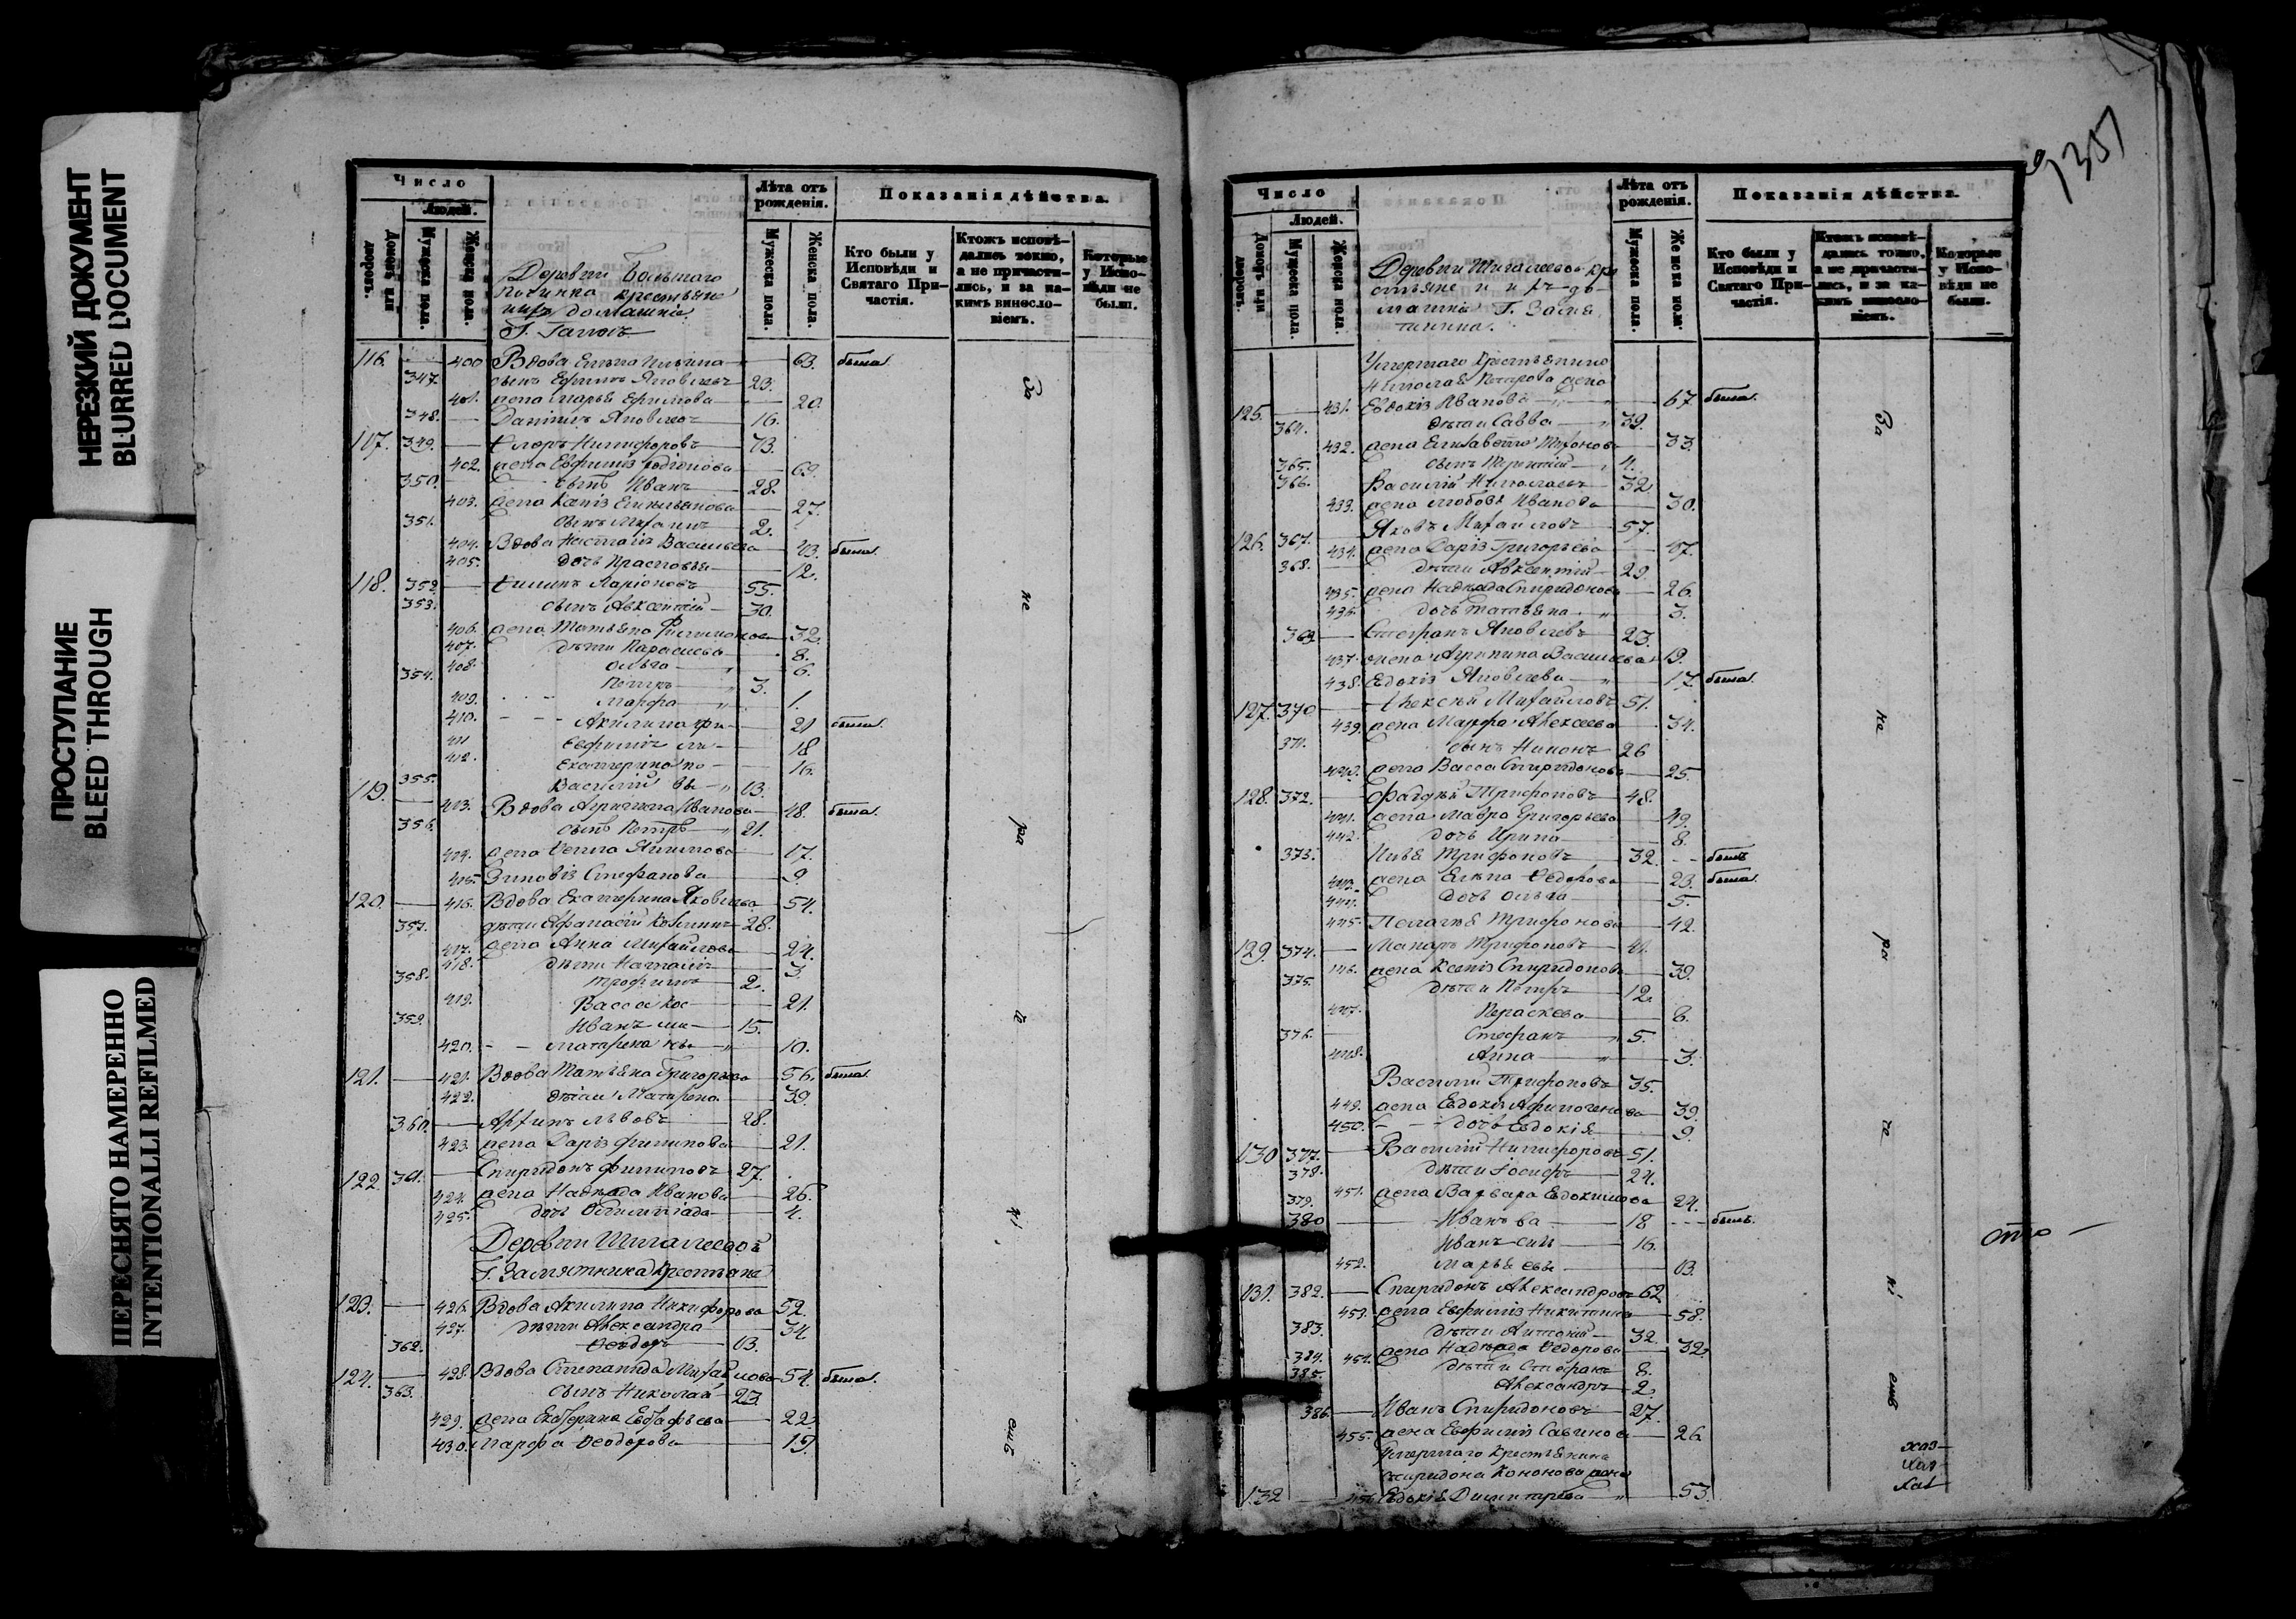 НЕРЕЗКИЙ ДОКУМЕНТ
BLURRED DOCUMENT
ПРОСТУПАНИЕ
BLEED THROUGH
ПЕРЕСНЯТО НАМЕРЕННО
INTENTIONALLI REFILMED
Число
Людей.
Домовъ или дворовъ.
Мужеска пола.
Женска пола.
Лѣта отъ рожденія.
Мужеска пола.
Женска пола.
Показанія дѣйства.
Кто были у Исповѣди и Святаго Причастія.
Ктожъ исповѣдались токмо, а не причастились, и за какимъ винословіемъ.
Которые у Исповѣди не были.
Деревни Большаго
Починка крестьяне
ихъ домашніе
Г.
116. 400 Вдова Елена Ильина 63. была.
347. сынъ Ефимъ Яковлевъ 23.
401. жена Марья Ефимова 20.
348. Даніилъ Яковлевъ 16.
117. 349. Никифоровъ 73.
402. жена Евфимія Родіонова 69.
350. сынъ Иванъ 28.
403. жена Ксенія Емельянова 27.
351. сынъ Михаилъ 2.
404. Вдова Настасія Васильева 43. была.
405. дочь Прасковья 12.
118. 352. Филипъ Ларіоновъ 55.
353. сынъ Авксентій 30.
406. жена Татьяна Филимонова 32.
407. дѣти Параскева 8.
408. Ольга 6.
354. Петръ 3.
409. Марфа 1.
410. Акилина 21 была.
411 Евфимія 18
412. Екатерина 16.
355. Василій 13.
119. 413. Вдова Агрипина Иванова 48. была.
356. сынъ Петръ 21.
414. жена Якимова 17.
415. Зиновія Стефанова 9
120. 416. Вдова Екатерина Яковлева 54.
357. дѣти Афанасій 28.
417. жена Анна Михайлова 24.
418. дѣти Наталія 3.
358. Трофимъ 2.
419. Васса 21.
359. Иванъ 15.
420. Матрена 10.
121. 421. Вдова Татьяна Григорьева 56. была.
422. дѣти Матрена 39.
360. Архипъ Львовъ 28.
423. жена Дарья Филипова 21.
122. 361. Спиридонъ Филиповъ 27.
424. жена Надежда Иванова 26.
425. дочь Олимпіада 4.
Деревни Шигалеевой
Г. Замятнина крестьяне
123. 426. Вдова Акилина Никифорова 52.
427. дѣти Александра 34
362. Феодоръ 13.
124. 428. Вдова Степанида Михайлова 54. была.
363. сынъ Николай 23.
429. жена Екатерина Евстафьева 22.
430. Марфа Феодорова 15.
За
не
ра
че
ні
емъ
Число
Людей.
Домовъ или дворовъ.
Мужеска пола.
Женска пола.
Лѣта отъ рожденія.
Мужеска пола.
Женска пола.
Показанія дѣйства.
Кто были у Исповѣди и Святаго Причастія.
Ктожъ исповѣдались токмо, а не причастились, и за какимъ винословіемъ.
Которые у Исповѣди не были.
Деревни Шигалеевой кре
стьяне и ихъ до
машніе Г. Замя
тнина.
Умершаго крестьянина
Николая Петрова жена
125. 431. Евдокія Иванова 67. была.
364. дѣти Савва 39.
432. жена Елисавета 33.
365. сынъ Терентій 4.
366. Василій Николаевъ 32
433. жена Любовь Иванова 30.
126. 367. Яковъ Михайловъ 57.
434. жена Дарія Григорьева 47.
368. дѣти Авксентій 29.
435. жена Надежда Спиридонова 26.
436. дочь Татьяна 3.
369 Стефанъ Яковлевъ 23.
437. жена Агрипина Васильева 19.
438. Евдокія Яковлева 17. была.
127. 370 Алексѣй Михайловъ 51.
439. жена Марфа Алексеева 34.
371. сынъ Никонъ 26
440. жена Васса Спиридонова 25.
128. 372. Фадѣй Трифоновъ 48.
441. жена Мавра Григорьева 49.
442. дочь Ирина 8.
373. Илья Трифоновъ 32. былъ
443. жена Елена Федорова 23. была.
444. дочь Ольга 5.
445. Пелагея Трифонова 42.
129. 374. Макаръ Трифоновъ 41.
446. жена Ксенія Спиридонова 39.
375. дѣти Петръ 12.
447. Параскева 8.
376. Стефанъ 5.
448. Анна 3.
Василій Трифоновъ 35.
449. жена Евдокія Афиногенова 39.
450. дочь Евдокія 9.
130 377. Василій Никифоровъ 51.
378. дѣти Іосифъ 24.
379. 451. жена Варвара Евдокимова 24.
380 Иванъ 18 былъ.
Иванъ 16.
452. Марья 13.
131. 382. Спиридонъ Александровъ 62
453. жена Евфимія Никитина 58.
383. дѣти Антоній 32.
384. 454. жена Надежда Федорова 32.
385. дѣти Стефанъ 8.
Александръ 2.
386. Иванъ Спиридоновъ 27.
455. жена Евфимія Савинова 26.
Умершаго крестьянина
Спиридона Кононова жена
132 456 Евдокія Димитріева 53.
За
не
ра
че
ні
емъ